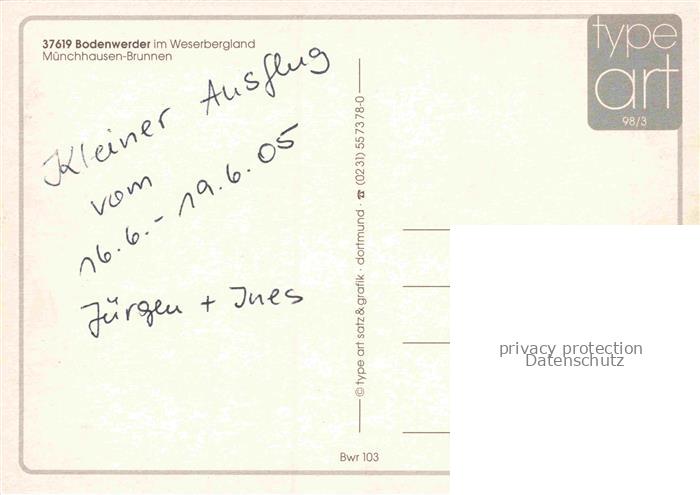 37619 Bodenwerder im Weserbergland
Münchhausen-Brunnen
type
art
98/3
Kleiner Ausflug
vom
16.6.- 19.6.05
Jürgen + Ines
© type art satz & grafik · dortmund · ☎ (0231) 55 73 78-0
Bwr 103
privacy protection
Datenschutz